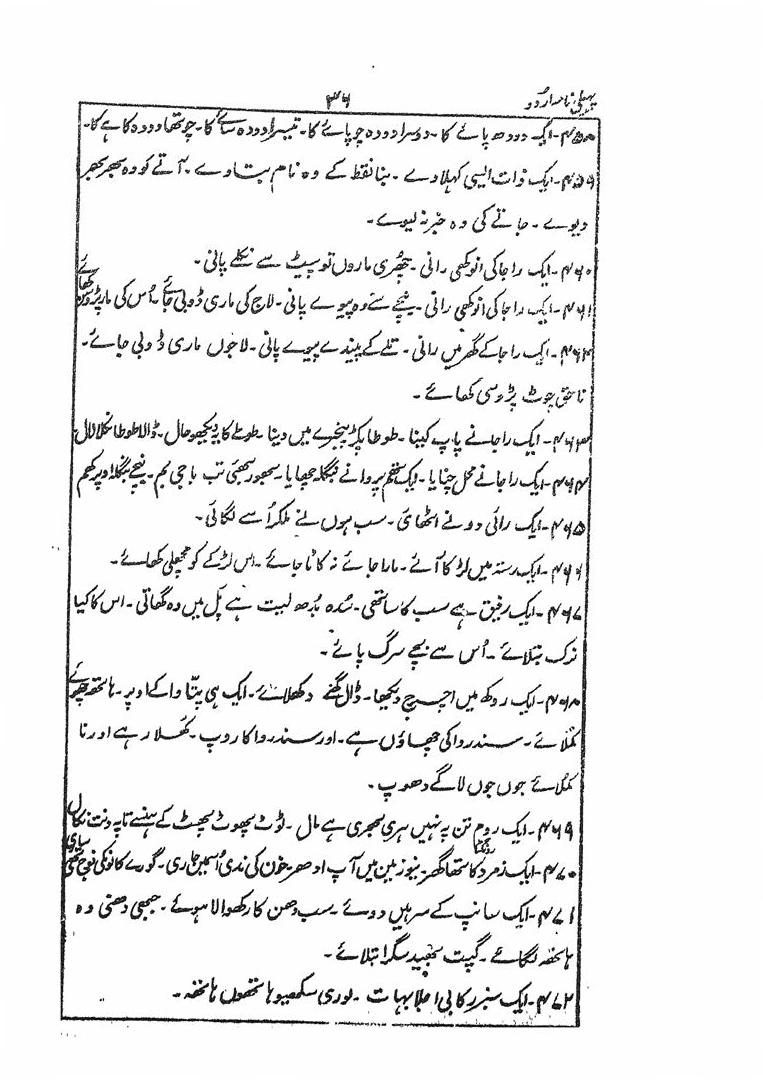 پہیلی نامہ اردو
۳۶
۴۵۸۔ ایک دودھ پانے کا۔ دوسرا دودہ چوپائے کا۔ تیسرا دودہ سائے کا۔ چوتھا دودہ کاہے کا۔
۴۵۹۔ ایک ذات ایسی کہلاوے۔ بنا نقط کے وہ نام بتاوے۔ آتے کو وہ بھر بھر
دیوے۔ جاتے کی وہ خبر نہ لیوے۔
۴۶۰۔ ایک راجا کی انوکھی رانی۔ چھری ماروں تو پیٹ سے نکلے پانی۔
۴۶۱۔ ایک راجا کی انوکھی رانی۔ نیچے سے وہ پیوے پانی۔ لاج کی ماری ڈوبی جائے۔ اُس کی مار پڑوسی کھائے
۴۶۲۔ ایک راجا کے گھر میں رانی۔ تلے کے پیندے پیوے پانی۔ لاجوں ماری ڈوبی جائے۔
ناحق چوٹ پڑوسی کھائے۔
۴۶۳۔ ایک راجا نے پاپ کینا۔ طوطا پکڑ پنجرے میں دینا۔ طوطے کا یہ دیکھو حال۔ ڈالا طوطا نکلا لال
۴۶۴۔ ایک راجا نے محل چنایا۔ ایک تھم پر وانے بنگلہ چھایا۔ بھور بھئی تب باجی بم۔ نیچے بنگلا اوپر تھم
۴۶۵۔ ایک رائی دو نے اٹھائی۔ سب ہوں نے ملکر اُسے لگائی۔
۴۶۶۔ ایک رستہ میں لڑکا آئے۔ مارا جائے نہ کاٹا جائے۔ اس لڑکے کو مچھلی کھائے۔
۴۶۷۔ ایک رفیق ہے سب کا ساتھی۔ سُدہ بُدھ لیت ہے پل میں وہ گھاتی۔ اس کا کیا
نرک بتلائے۔ اُس سے بچے سرگ پائے۔
۴۶۸۔ ایک روکھ میں اچرج دیکھا۔ ڈال گھنے دکھلائے۔ ایک ہی پتّا وا کے اوپر۔ ہاتھ چھوئے
کملائے۔ سندر وا کی چھاؤں ہے۔ اور سندر وا کا روپ۔ کھلا رہے اور نا
کملائے جوں جوں لاگے دھوپ۔
۴۶۹۔ ایک روم تن پہ نہیں ہری بھری ہے مال۔ ٹوٹ پھوٹ پھٹ کے ہنسے تا پہ دنت نکال
۴۷۰۔ ایک زمرد کا تھا گھر۔ نیو زمین میں آپ ادھر۔ خون کی ندی اُسمیں جاری۔ گورے کا نوکی فوج تھی ساری
۴۷۱۔ ایک سانپ کے سر ہیں دوئے۔ سب دھن کا رکھوالا ہوئے۔ جبھی دھنی وہ
ہاتھ لگائے۔ گپت بھید سگرا بتلائے۔
۴۷۲۔ ایک سبز رکابی اجلا بھات۔ لو ری سکھیو ہاتھوں ہاتھ۔